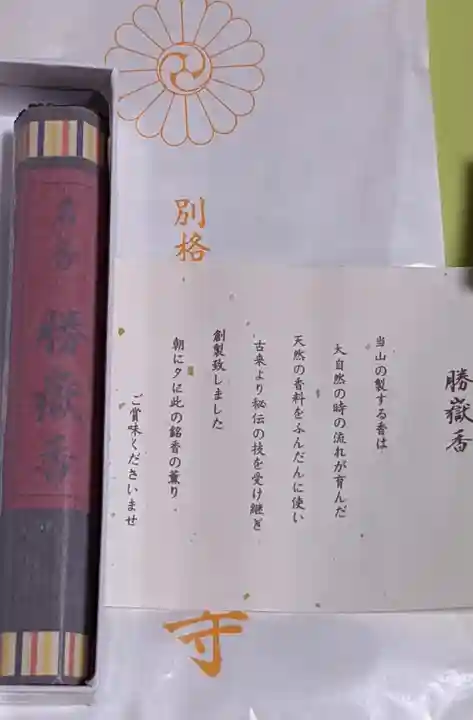 勝嶽香
当山の製する香は
大自然の時の流れが育んだ
天然の香料をふんだんに使い
古来より秘伝の技を受け継ぎ
創製致しました
朝に夕に此の銘香の薫り
ご賞味くださいませ
別格
寺
勝嶽香